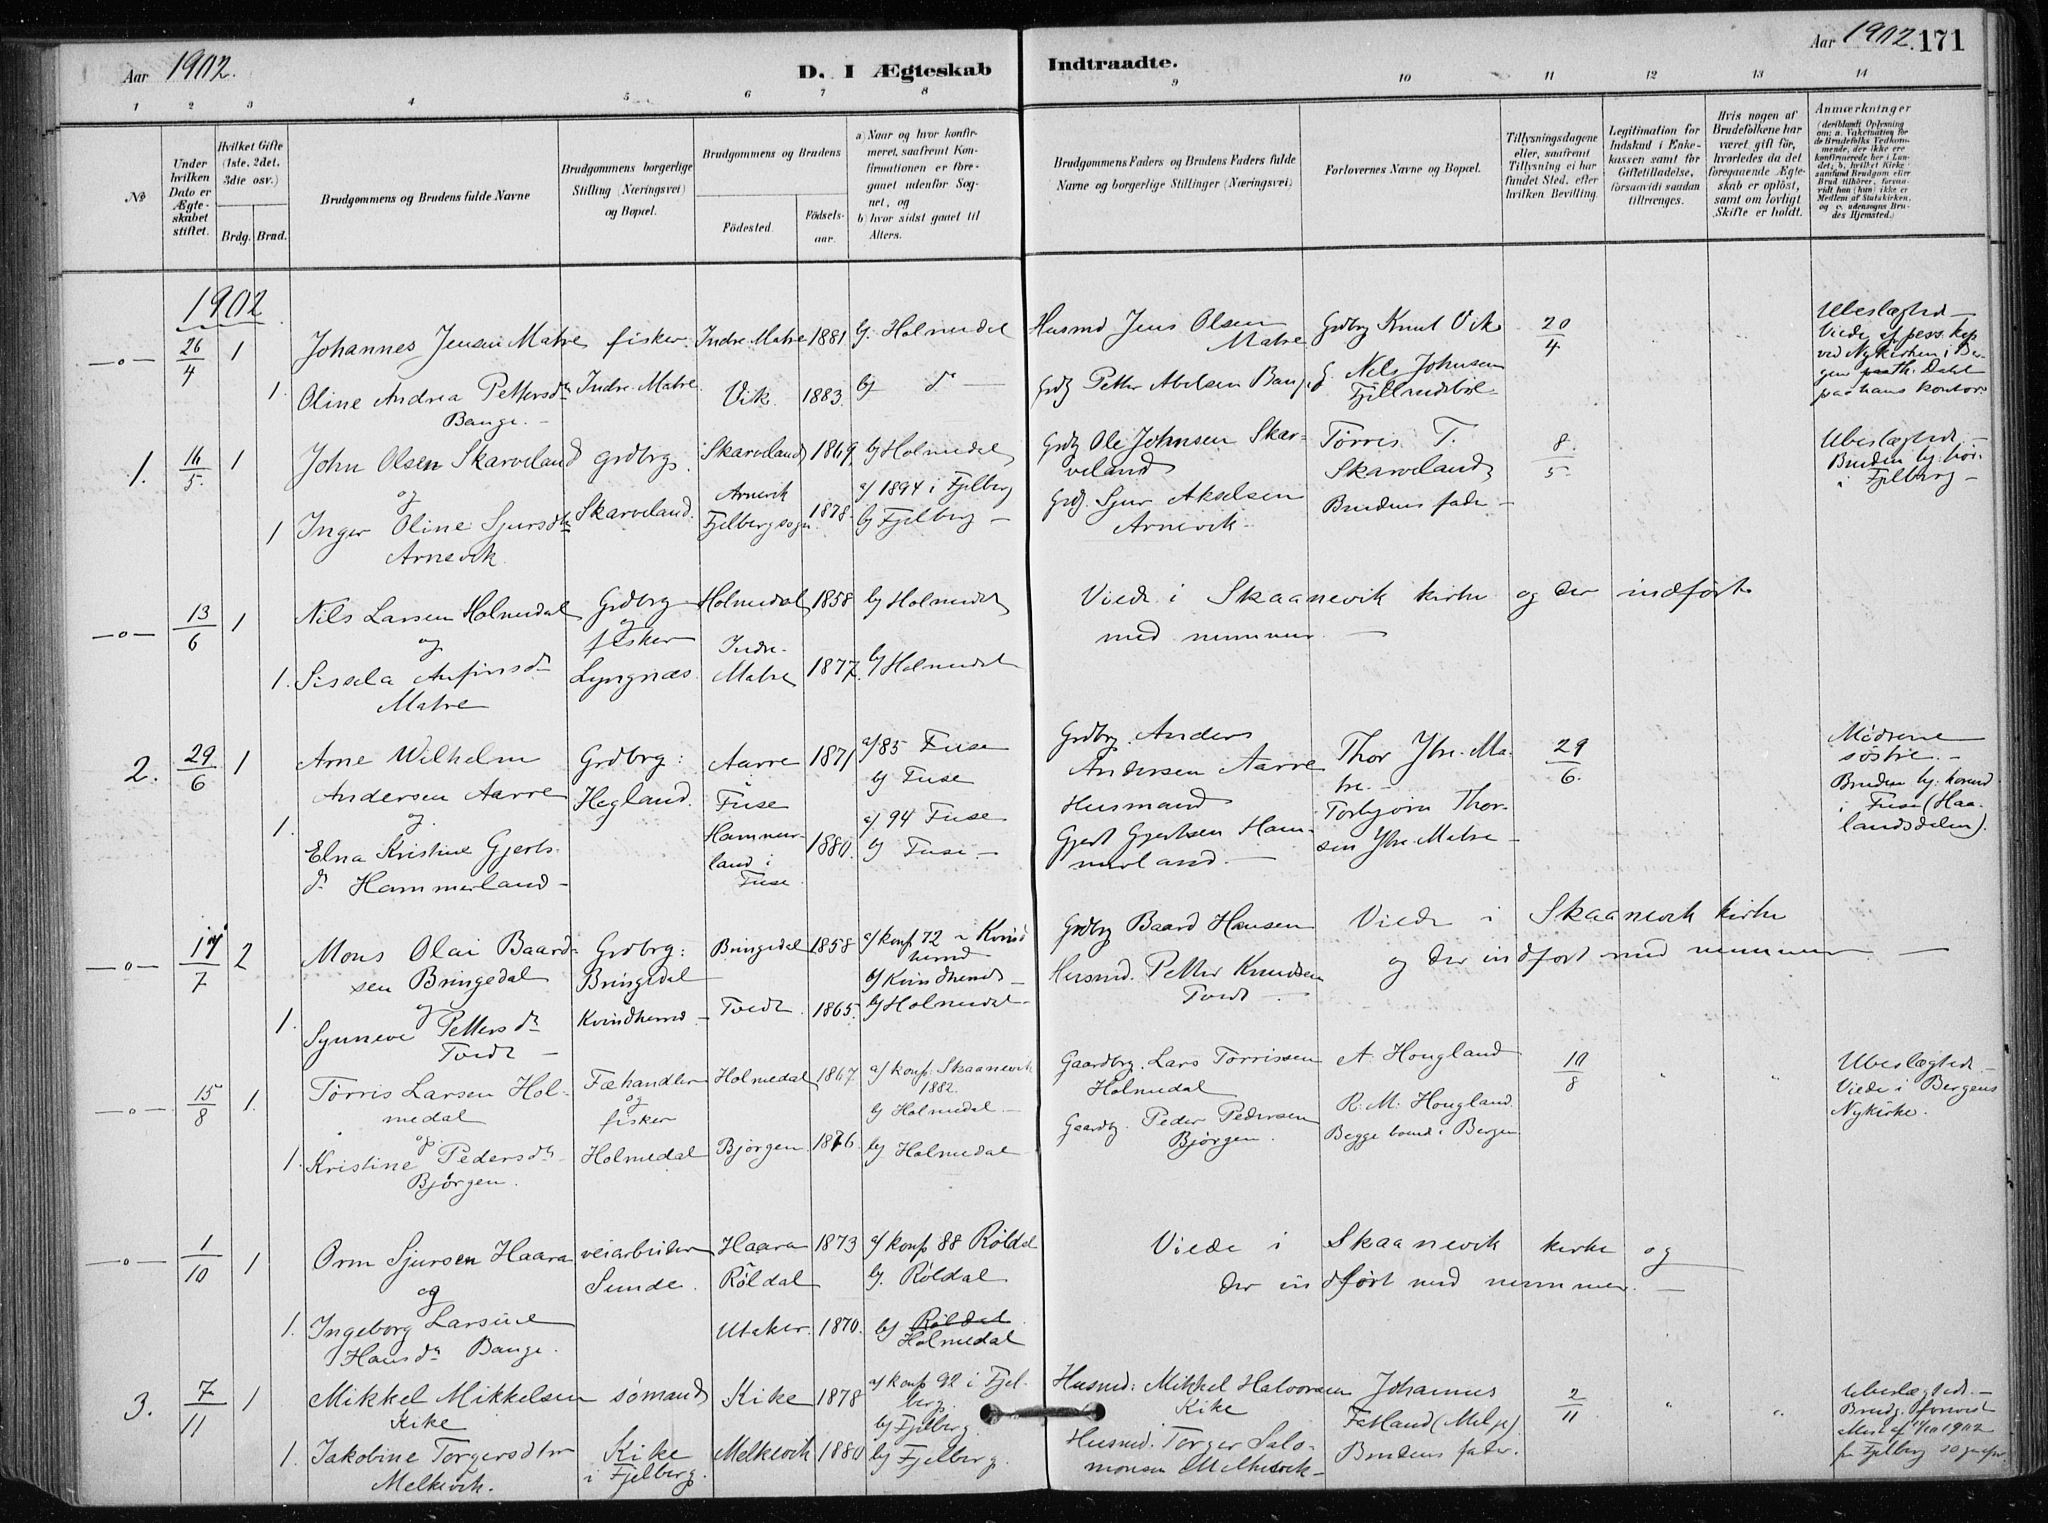 Aar 1902.
D. I Ægteskab Indtraadte.
Aar 1902. 171
1 2 3 4 5 6 7 8 9 10 11 12 13 14
No
Under hvilken Dato er Ægteskabet stiftet.
Hvilket Gifte (1ste, 2det, 3die osv.)
Brdg. Brud.
Brudgommens og Brudens fulde Navne
Brudgommens borgerlige Stilling (Næringsvei) og Bopæl.
Brudgommens og Brudens
Födested.
Födselsaar.
a) Naar og hvor konfirmeret, saafremt Konfirmationen er foregaaet udenfor Sognet, og
b) hvor sidst gaaet til Alters.
Brudgommens Faders og Brudens Faders fulde Navne og borgerlige Stillinger (Næringsvei)
Forlovernes Navne og Bopæl.
Tillysningsdagene eller, saafremt Tillysning ei har fundet Sted, efter hvilken Bevilling.
Legitimation for Indskud i Enkekassen samt for Giftetilladelse, forsaavidt saadan tiltrænges.
Hvis nogen af Brudefolkene har været gift før, hvorledes da det foregaaende Ægteskab er oplöst, samt om lovligt Skifte er holdt.
Anmærkninger
1902
—o— 26/4 1 Johannes Jensen Matre fisker Indre Matre 1881 bj Holmedal Husmd Jens Olsen Matre Grdbrg Knut Vik 20/4 Ubeslægtede —
1. Oline Andrea Pettersdtr Bange. Indre Matre. Vik 1883. bj do — Grdbr Petter Abelsen Bange Nils Johnsen
Viede af pers. kap. ved Nykirken i Bergen Dahl paa hans kontor.
1. 16/5 1 John Olsen Skarveland grdbrg. Skarveland 1869 bj Holmedal Grdbr Ole Johnsen Skarveland Tørris T. Skarveland 8/5 Ubeslægtede. —
og
1 Inger Oline Sjursdtr Arnevik Skarveland. Arnevik Fjelbergsogn 1878. a/ 1894 i Fjelberg b/ Fjelberg — Grdb. Sjur Akselsen Arnevik. Brudens fader —
—o— 13/6 1 Nils Larsen Holmedal Grdbrg og fisker Holmedal 1858 bj Holmedal Viede i Skaanevik kirke og der indført
med nummer. —
og
1. Sissela Anfinsdtr Matre Lyngnæs. Indre Matre 1877. b/ Holmedal
2. 29/6 1 Arne Wilhelm Andersen Aarre Grdbrg: Hegland. Aarre Fuse 1871 a/ 85 Fuse b/ Fuse Grdbrg. Anders Andersen Aarre Thor Ytre-Matre. 29/6. Mødrene søstre. —
og
1. Elna Kristine Gjertsdr Hammerland — Hammerland i Fuse. 1880. a/ 94 Fuse b/ Fuse. — Husmand Gjert Gjertsen Hammerland. — Torbjørn Thorsen Ytre Matre —
i Fuse (Haalandsdalen).
—o— 17/7 2 Mons Olai Baardsen Bringedal Grdbrg: Bringedal Kvindherred — Bringedal 1858 a/ konf 72 i Kvindherred b/ Kvindherred — Grdbrg Baard Hansen Viede i Skaanevik kirke
og der indført med nummer —
og
1. Synneve Pettersdtr Tvedt — Tvedt 1865. b/ Holmedal — Husmd. Petter Knudsen Tvedt —
—o— 15/8 1. Tørris Larsen Holmedal Fæhandler og fisker Holmedal 1867 a/ konf: Skaanevik 1882. b/ Holmedal — Gaardbrg. Lars Tørrissen Holmedal A. Hougland 10/8 " " Ubeslægtede.
Viede i Bergens Nykirke.
og.
1. Kristine Pedersdtr Bjørgen. Holmedal Bjørgen 1876 b/ Holmedal Gaardb. Peder Pedersen Bjørgen. R. M. Hougland. Begge boende i Bergen
—o— 1/10 1 Orm Sjursen Haara veiarbeider Sunde. Haara Røldal 1873 a/ konf 88 Røldal b/. Røldal Viede i Skaanevik kirke og
der indført med nummer. —
og
1. Ingeborg Larsine Hansdtr Bange. Utaker. 1870. b/ Røldal. Holmedal
3. 7/11 1 Mikkel Mikkelsen Kike sømand Kike 1878 a/ konf 92 i Fjelberg. b/ Fjelberg. Husmd: Mikkel Halvorsen Kike Johannes Fatland 2/11 " " Ubeslægtede. —
1. Jakobine Torgersdtr Melkevik. Kike i Fjelberg. Melkevik 1880 b/ Fjelberg. Husmd. Torger Salomonsen Melkevik — Brudens fader.